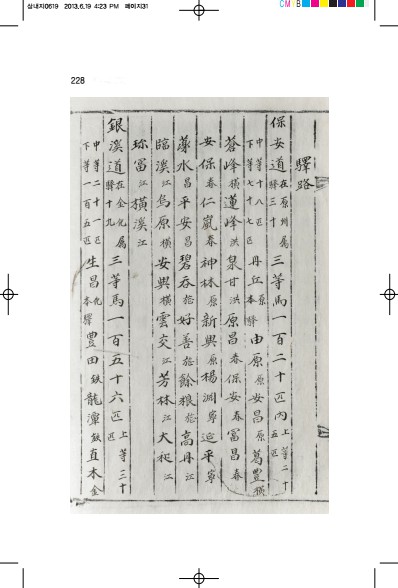 삼내지0619 2013.6.19 4:23 PM 페이지31
CMYB
228
驛路
保安道在原州属驛三十 三等馬一百二十匹内上等二十五匹
中等十八匹下等七十七匹 丹丘原本驛 由原原 安昌原 葛豊横
蒼峰横 蓮峰洪 泉甘洪 原昌春 保安春 富昌春
安保春 仁嵐春 神林原 新興原 楊淵寧 延平寧
藥水昌 平安昌 碧呑旌 好善旌 餘粮旌 高丹江
臨溪江 烏原横 安興横 雲交江 芳林江 大和江
珎富江 横溪江
銀溪道在金化属驛十九 三等馬一百五十六匹上等三十匹
中等二十一匹下等一百五匹 生昌化本驛 豊田鉄 龍潭鉄 直木金